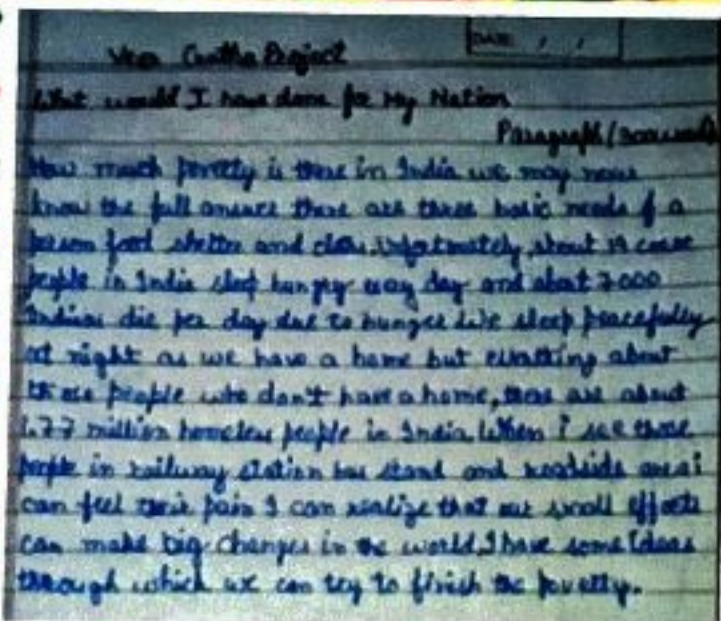 Veer Gatha Project
DATE / /
What would I have done for My Nation
Paragraph (300 words)
How much poverty is there in India we may never
know the full answer there are three basic needs of a
person food shelter and unfortunately, about 19 crore
people in India sleep hungry every day and about 7000
Indians die per day due to hunger We sleep peacefully
at night as we have a home but about
those people who don't have a home, there are about
1.77 million homeless people in India. When I see those
people in railway station bus stand and roadside area i
can feel their pain I can realize that our small efforts
can make big changes in the world. I have some Ideas
through which we can try to finish the poverty.